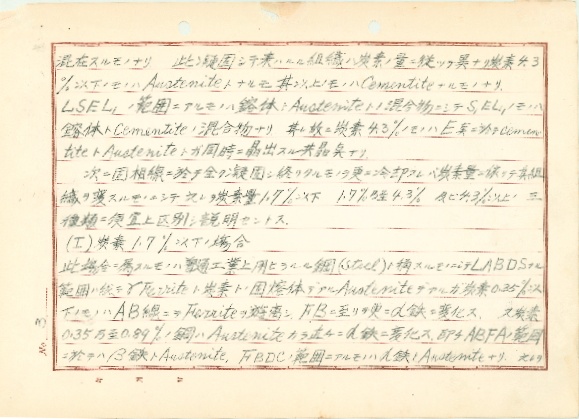 混在スルモノナリ 此ノ凝固シテ表ハルル組織ハ炭素ノ量ニ従ッテ異ナリ炭素4.3
%以下ノモノハAusteniteトナルモ其以上ノモノハCementiteナルモノナリ.
LSEL, ノ範囲ニアルモノハ熔体トAusteniteトノ混合物ニシテSEL,ノモノハ
熔体トCementiteノ混合物ナリ 其レ故ニ炭素4.3%ノモノハE点ニ於テCemen-
titeトAusteniteトガ同時ニ晶出スル共晶矣ナリ.
次ニ固相線ニ於テ全ク凝固シ終リタルモノヲ更ニ冷却スレバ炭素量ニ依リテ其組
織ヲ異スルモノニシテ 炭素量1.7%以下 1.7%乃至4.3% 及ビ4.3%以上ノ三
種類ニ便宜上区別シ説明セントス.
(I) 炭素1.7%以下ノ場合
此場合ニ属スルモノハ普通工業上用ヒラルル鋼(Steel)ト稱スルモノニシテLABDSナル
範囲ノ鉄ニテγFerriteト炭素トノ固熔体デアルAusteniteデアルガ炭素0.35%以
下ノモノハAB線ニテFerriteヲ遊離シ FBニ至リ更ニα鉄ニ変化ス. 又炭素
0.35乃至0.89%ノ鋼ハAusteniteカラ直チニα鉄ニ変化ス. 即チABFAノ範囲
ニ於テハβ鉄トAustenite, FBDCノ範囲ニアルモノハα鉄トAusteniteナリ.
No. 3.